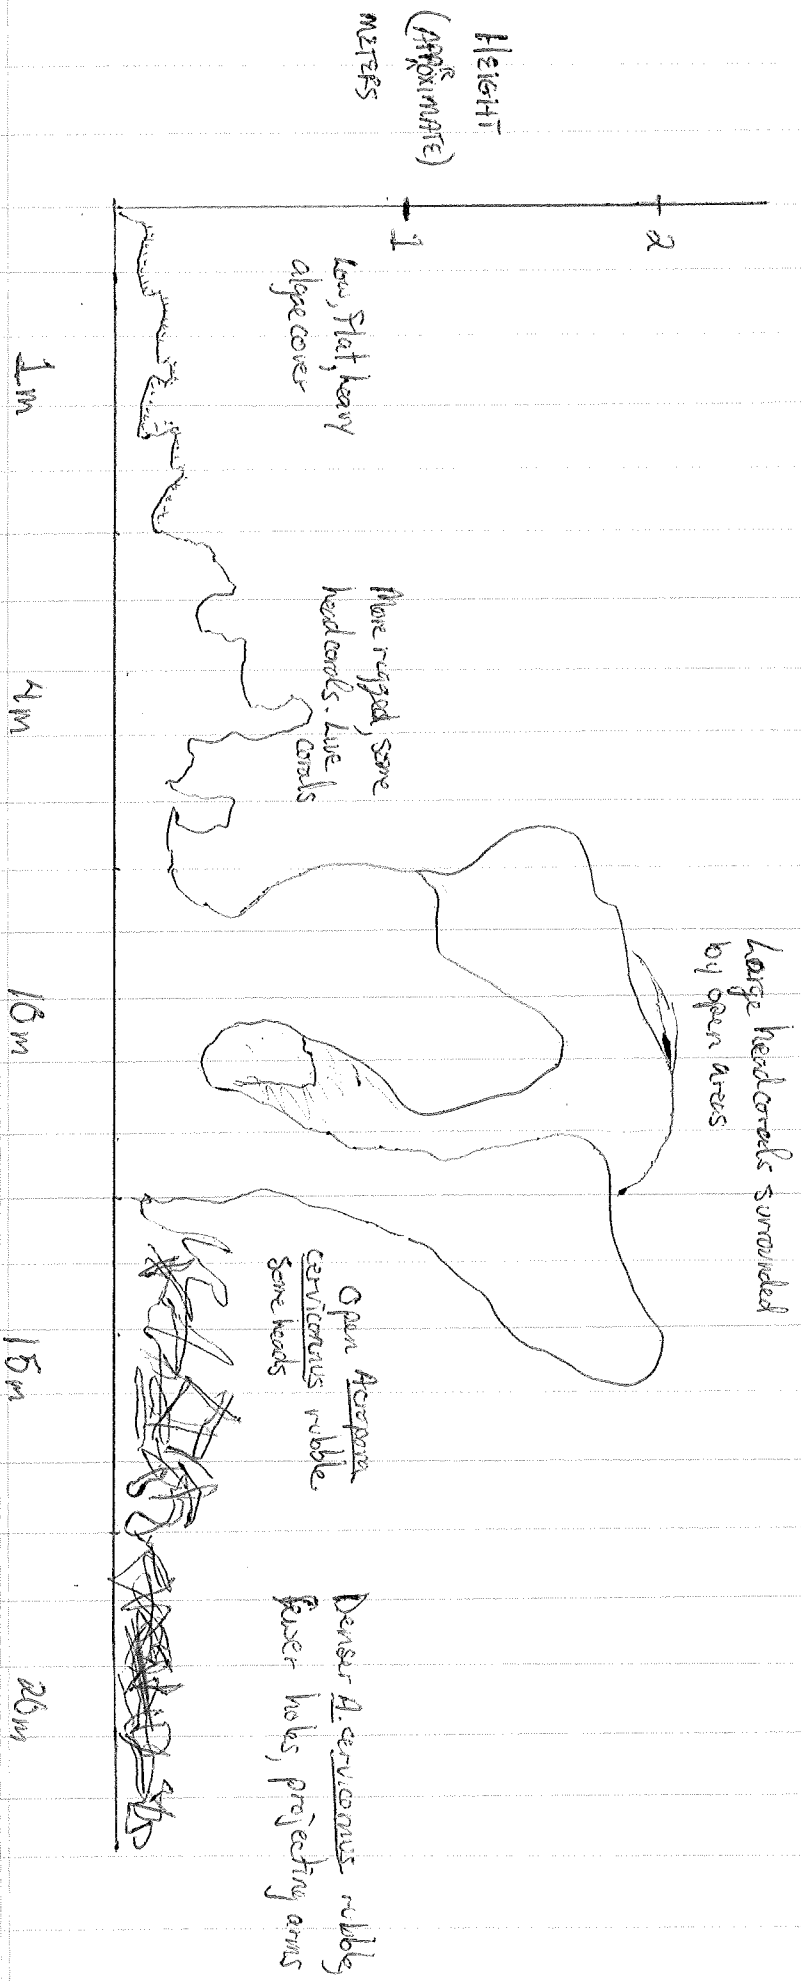 HEIGHT
(APPROXIMATE)
METERS
2
1
Low, flat, heavy
algae cover
More rugged, some
head corals. Live
corals
Large head corals surrounded
by open areas
Open Acropora
cervicornus rubble.
Some heads
Denser A. cervicornus rubble,
fewer holes, projecting arms
1m
4m
10m
15m
20m